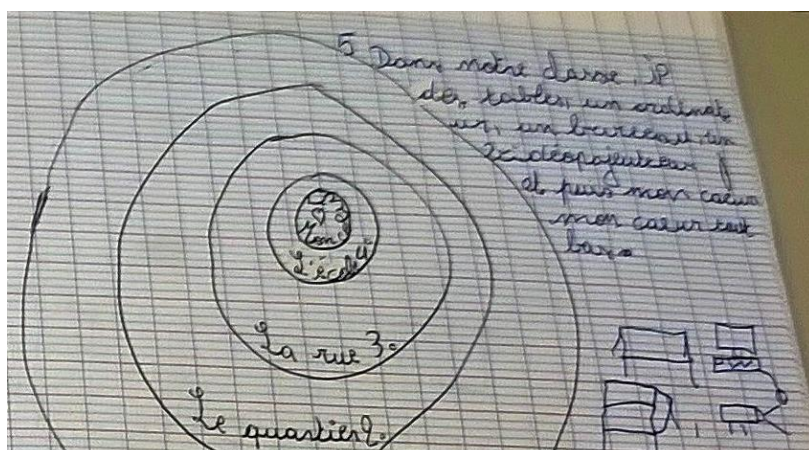 5 Dans notre classe, il
des tables, un ordinate
ur, un bureau, un
et puis mon cœur
mon cœur tout
bas.
Mon
L'école 4
La rue 3.
Le quartier 2.